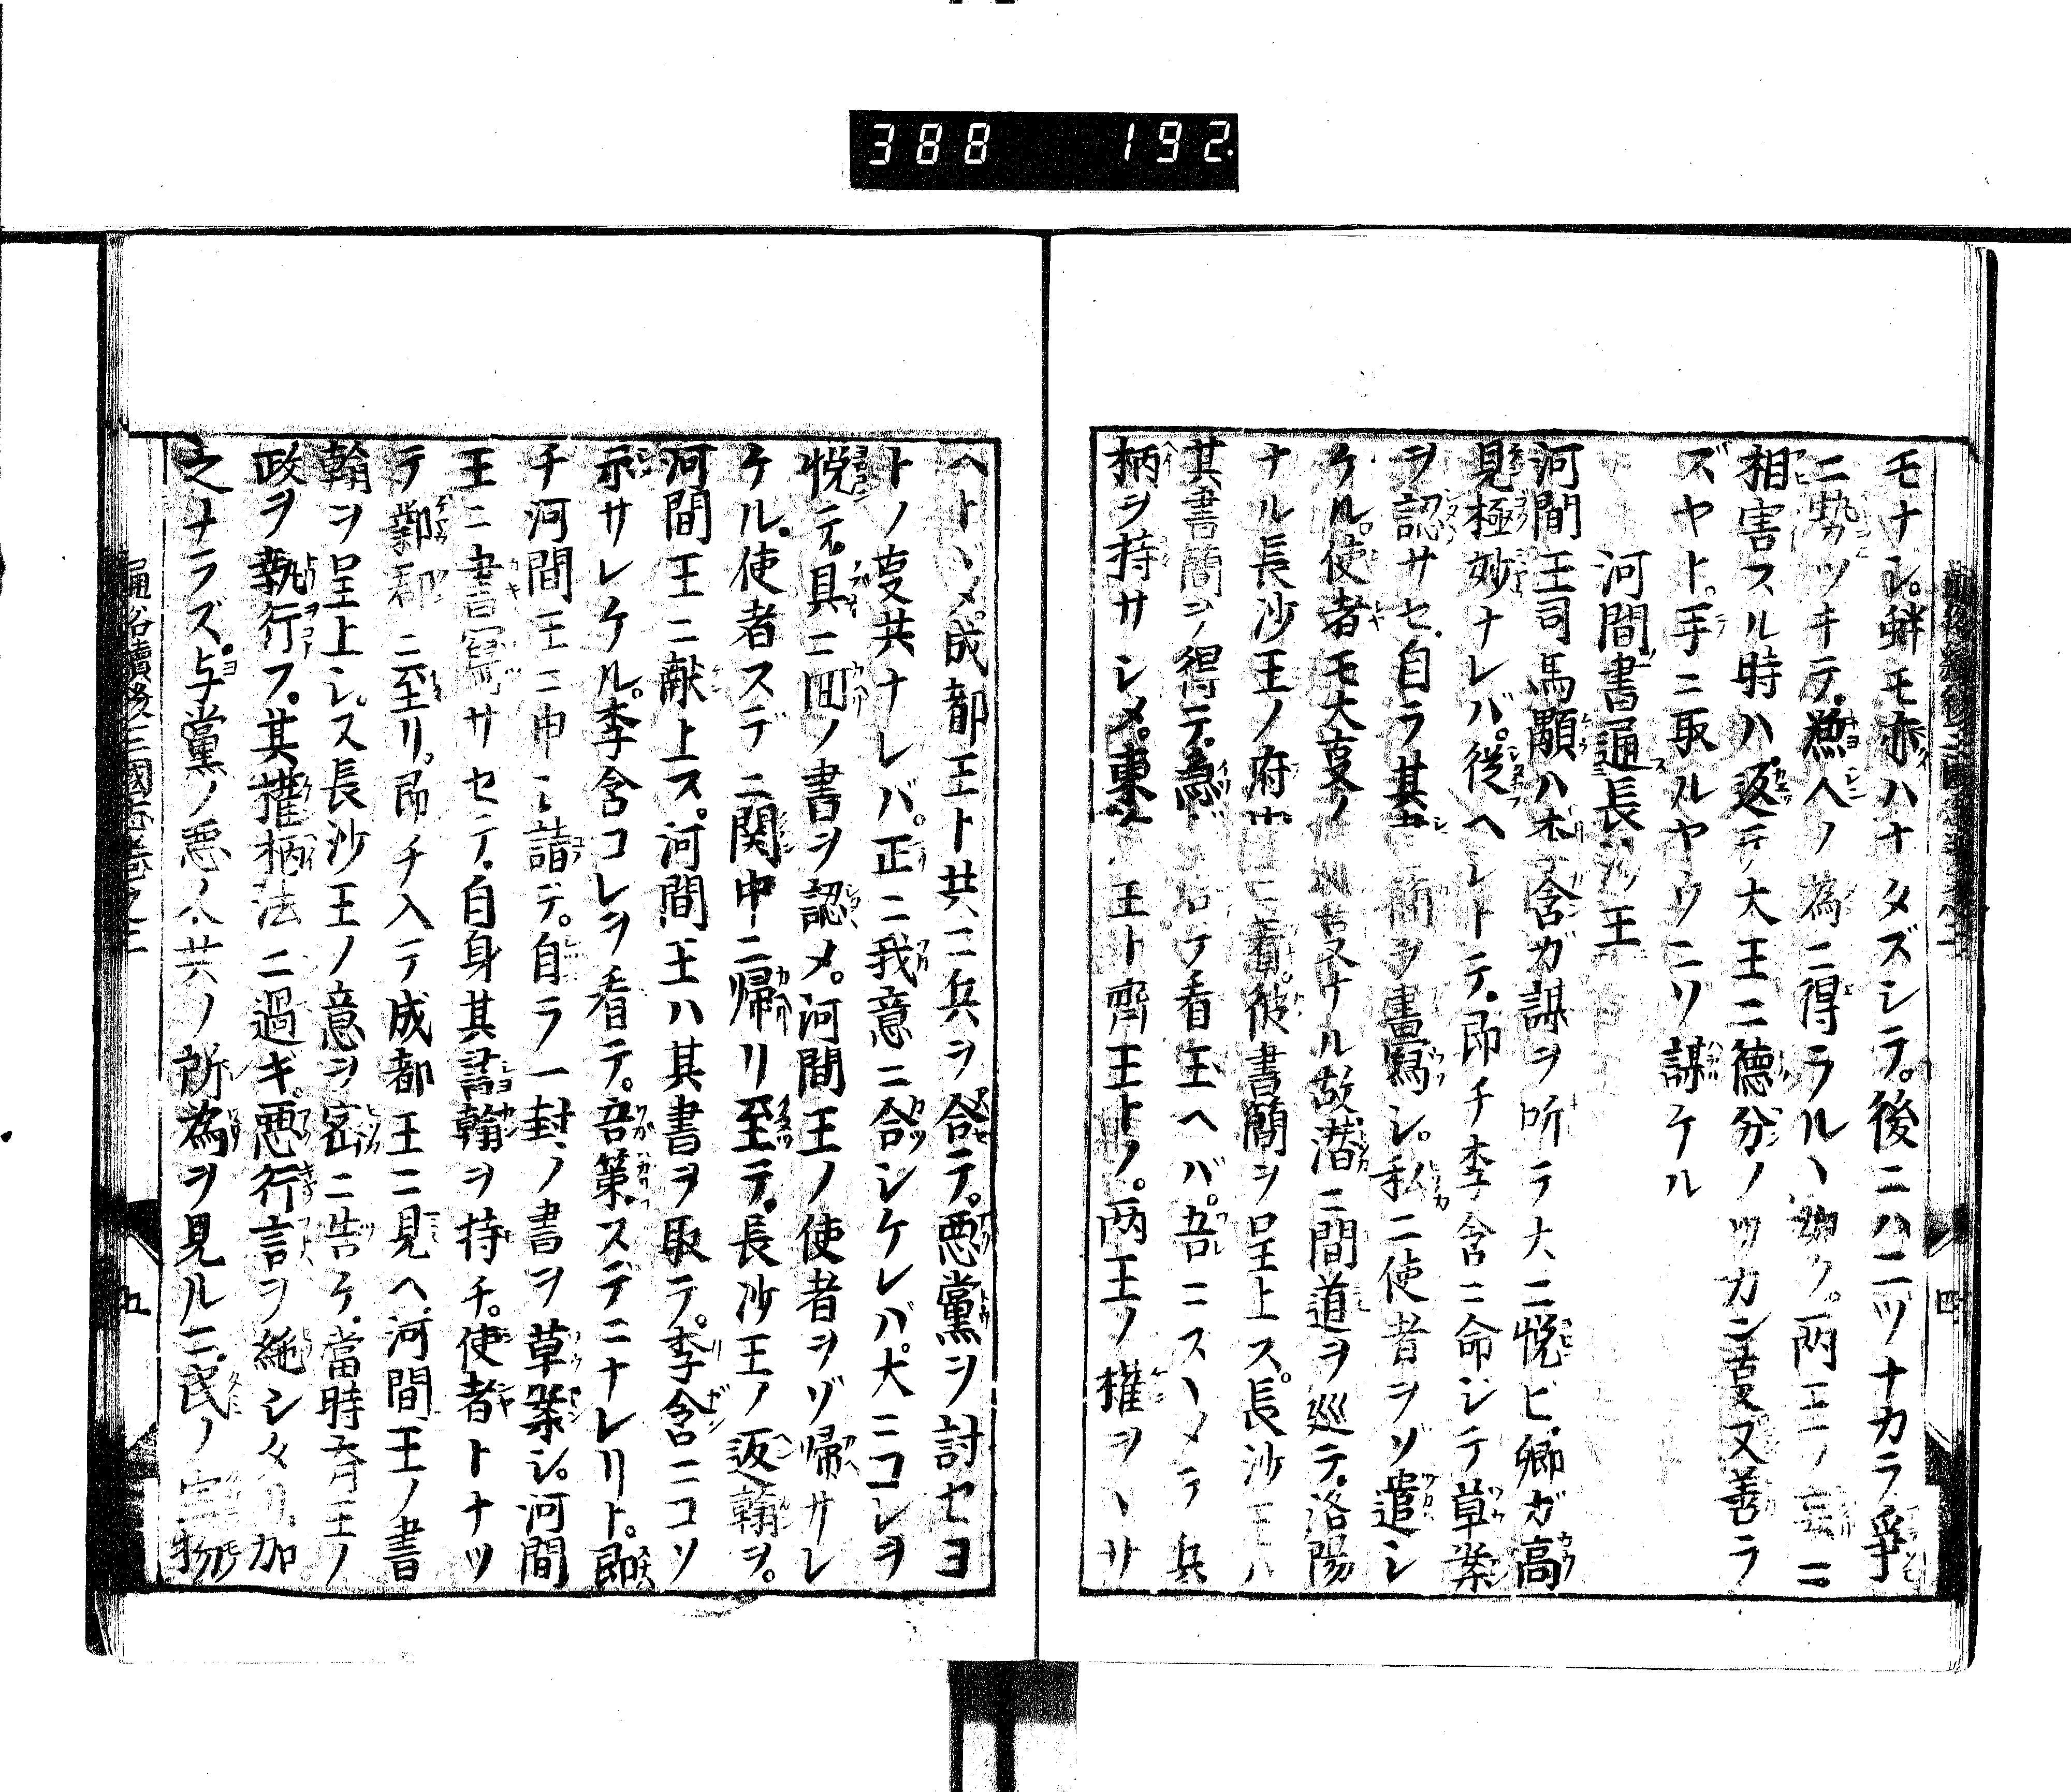 388 192
モナシ。蚌モ亦ハナタズシラ。後ニハ二ツナカラ爭
ニ勢ツキテ。漁人ノ為ニ得ラルヽ如ク。両王ノ互ニ
相害スル時ハ。返テ大王ニ德分ノツカン㕝又善ラ
ズヤト。手ニ取ルヤウニソ謀ケル
河間書通長沙王
河間王司馬顒ハ李含ガ謀ヲ听テ大ニ悦ビ。卿ガ高
見極妙ナレバ。従ヘシトテ。即チ李含ニ命ジテ草案
ヲ認サセ。自ラ其書簡ヲ畫寫シ。私ニ使者ヲゾ遣シ
ケル。使者モ大㕝ノ ナル故潜ニ間道ヲ巡テ。洛陽
ナル長沙王ノ府 ニ着。彼書簡ヲ呈上ス。長沙王ハ
其書簡ヲ得テ。急ギ テ看玉ヘバ。吾ニスヽメテ兵
柄ヲ持サシメ。東 王ト齊王トノ。両王ノ權ヲヽサ
ヘトヽメ。成都王ト共ニ兵ヲ合テ。悪黨ヲ討セヨ
トノ㕝共ナレバ。正ニ我意ニ合シケレバ。大ニコレヲ
悦テ。具ニ回ノ書ヲ認メ。河間王ノ使者ヲゾ帰サレ
ケル。使者スデニ関中ニ帰リ至テ。長沙王ノ返翰ヲ。
河間王ニ献上ス。河間王ハ其書ヲ取テ。李含ニコソ
示サレケル。李含コレヲ看テ。吾策スデニナレリト。即
チ河間王ニ申シ請デ。自ラ一封ノ書ヲ草案シ。河間
王ニ書寫サセテ。自身其書翰ヲ持チ。使者トナツ
テ鄴郡ニ至リ。即チ入テ成都王ニ見ヘ。河間王ノ書
翰ヲ呈上シ。又長沙王ノ意ヲ密ニ告ケ。當時齊王ノ
政ヲ執行フ。其權柄法ニ過ギ。悪行言ヲ絶シタリ。加
之ナラズ。与黨ノ悪人共ノ所為ヲ見ルニ。民ノ宝物
通俗續後三國志卷之三
四
通俗續後三國志卷之三
五